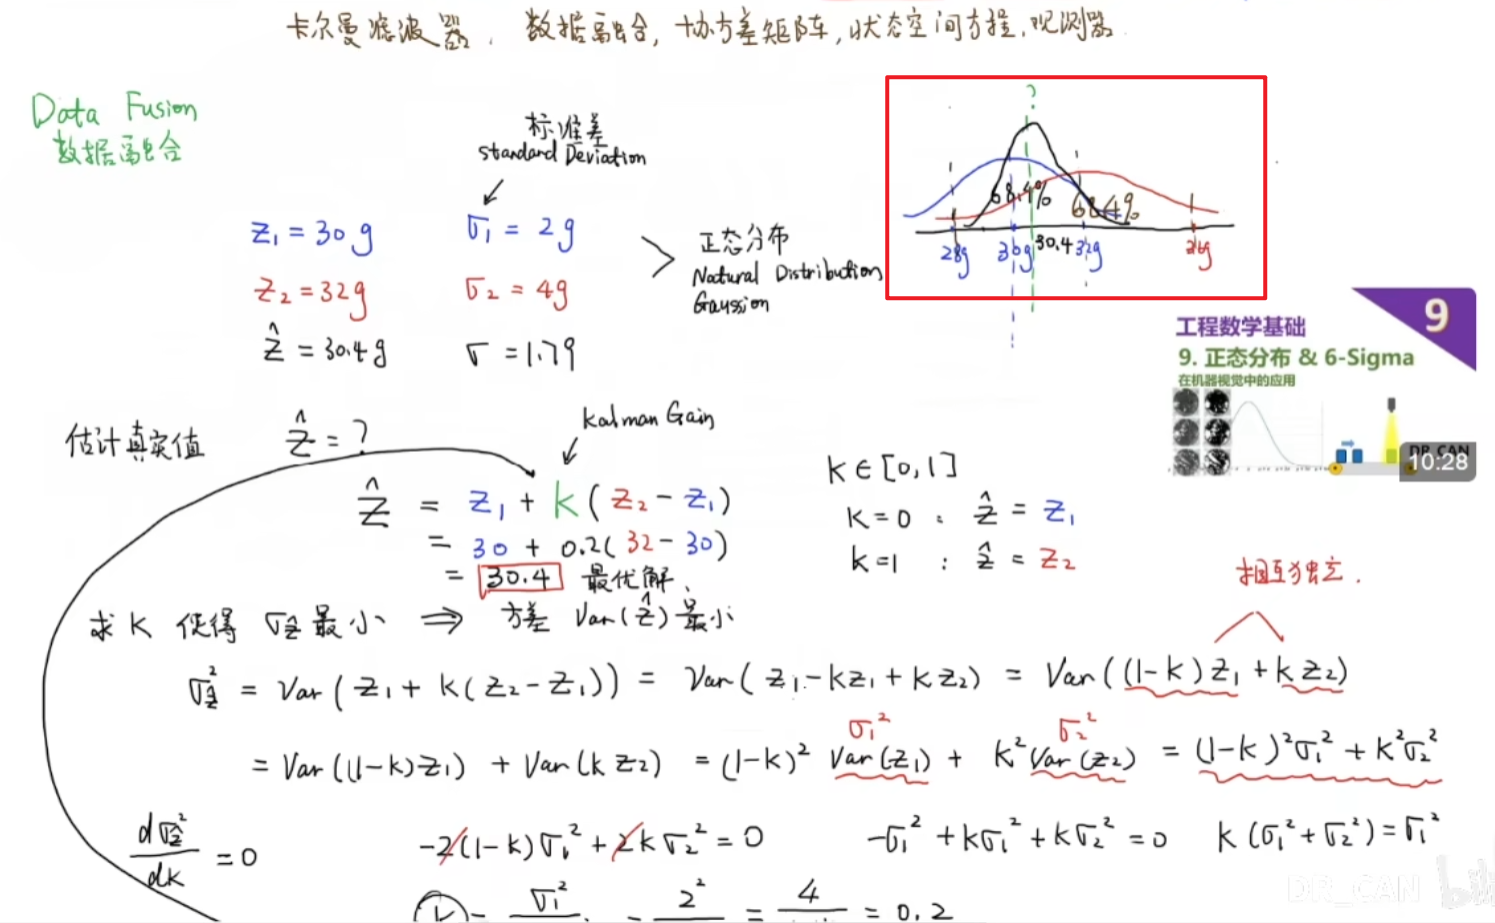 卡尔曼滤波器, 数据融合, 协方差矩阵, 状态空间方程, 观测器
Data Fusion
数据融合
标准差
Standard Deviation
z₁ = 30g σ₁ = 2g
z₂ = 32g σ₂ = 4g
ẑ = 30.4g σ = 1.79
正态分布
Natural Distribution
Gaussion
?
68.4% 68.4%
28g 30g 30.4 32g 36g
工程数学基础 9
9. 正态分布 & 6-Sigma
在机器视觉中的应用
DR_CAN
10:28
Kalman Gain
估计真实值 ẑ = ?
ẑ = z₁ + k(z₂ - z₁)
= 30 + 0.2(32 - 30)
= 30.4 最优解
k ∈ [0,1]
k = 0 : ẑ = z₁
k = 1 : ẑ = z₂
相互独立.
求 k 使得 σẑ 最小 ⟹ 方差 Var(ẑ) 最小
σẑ² = Var(z₁ + k(z₂ - z₁)) = Var(z₁ - kz₁ + kz₂) = Var((1-k)z₁ + kz₂)
σ₁² σ₂²
= Var((1-k)z₁) + Var(kz₂) = (1-k)² Var(z₁) + k² Var(z₂) = (1-k)²σ₁² + k²σ₂²
dσẑ²/dk = 0 -2(1-k)σ₁² + 2kσ₂² = 0 -σ₁² + kσ₁² + kσ₂² = 0 k(σ₁² + σ₂²) = σ₁²
k = σ₁² = 2² = 4 = 0.2
DR_CAN